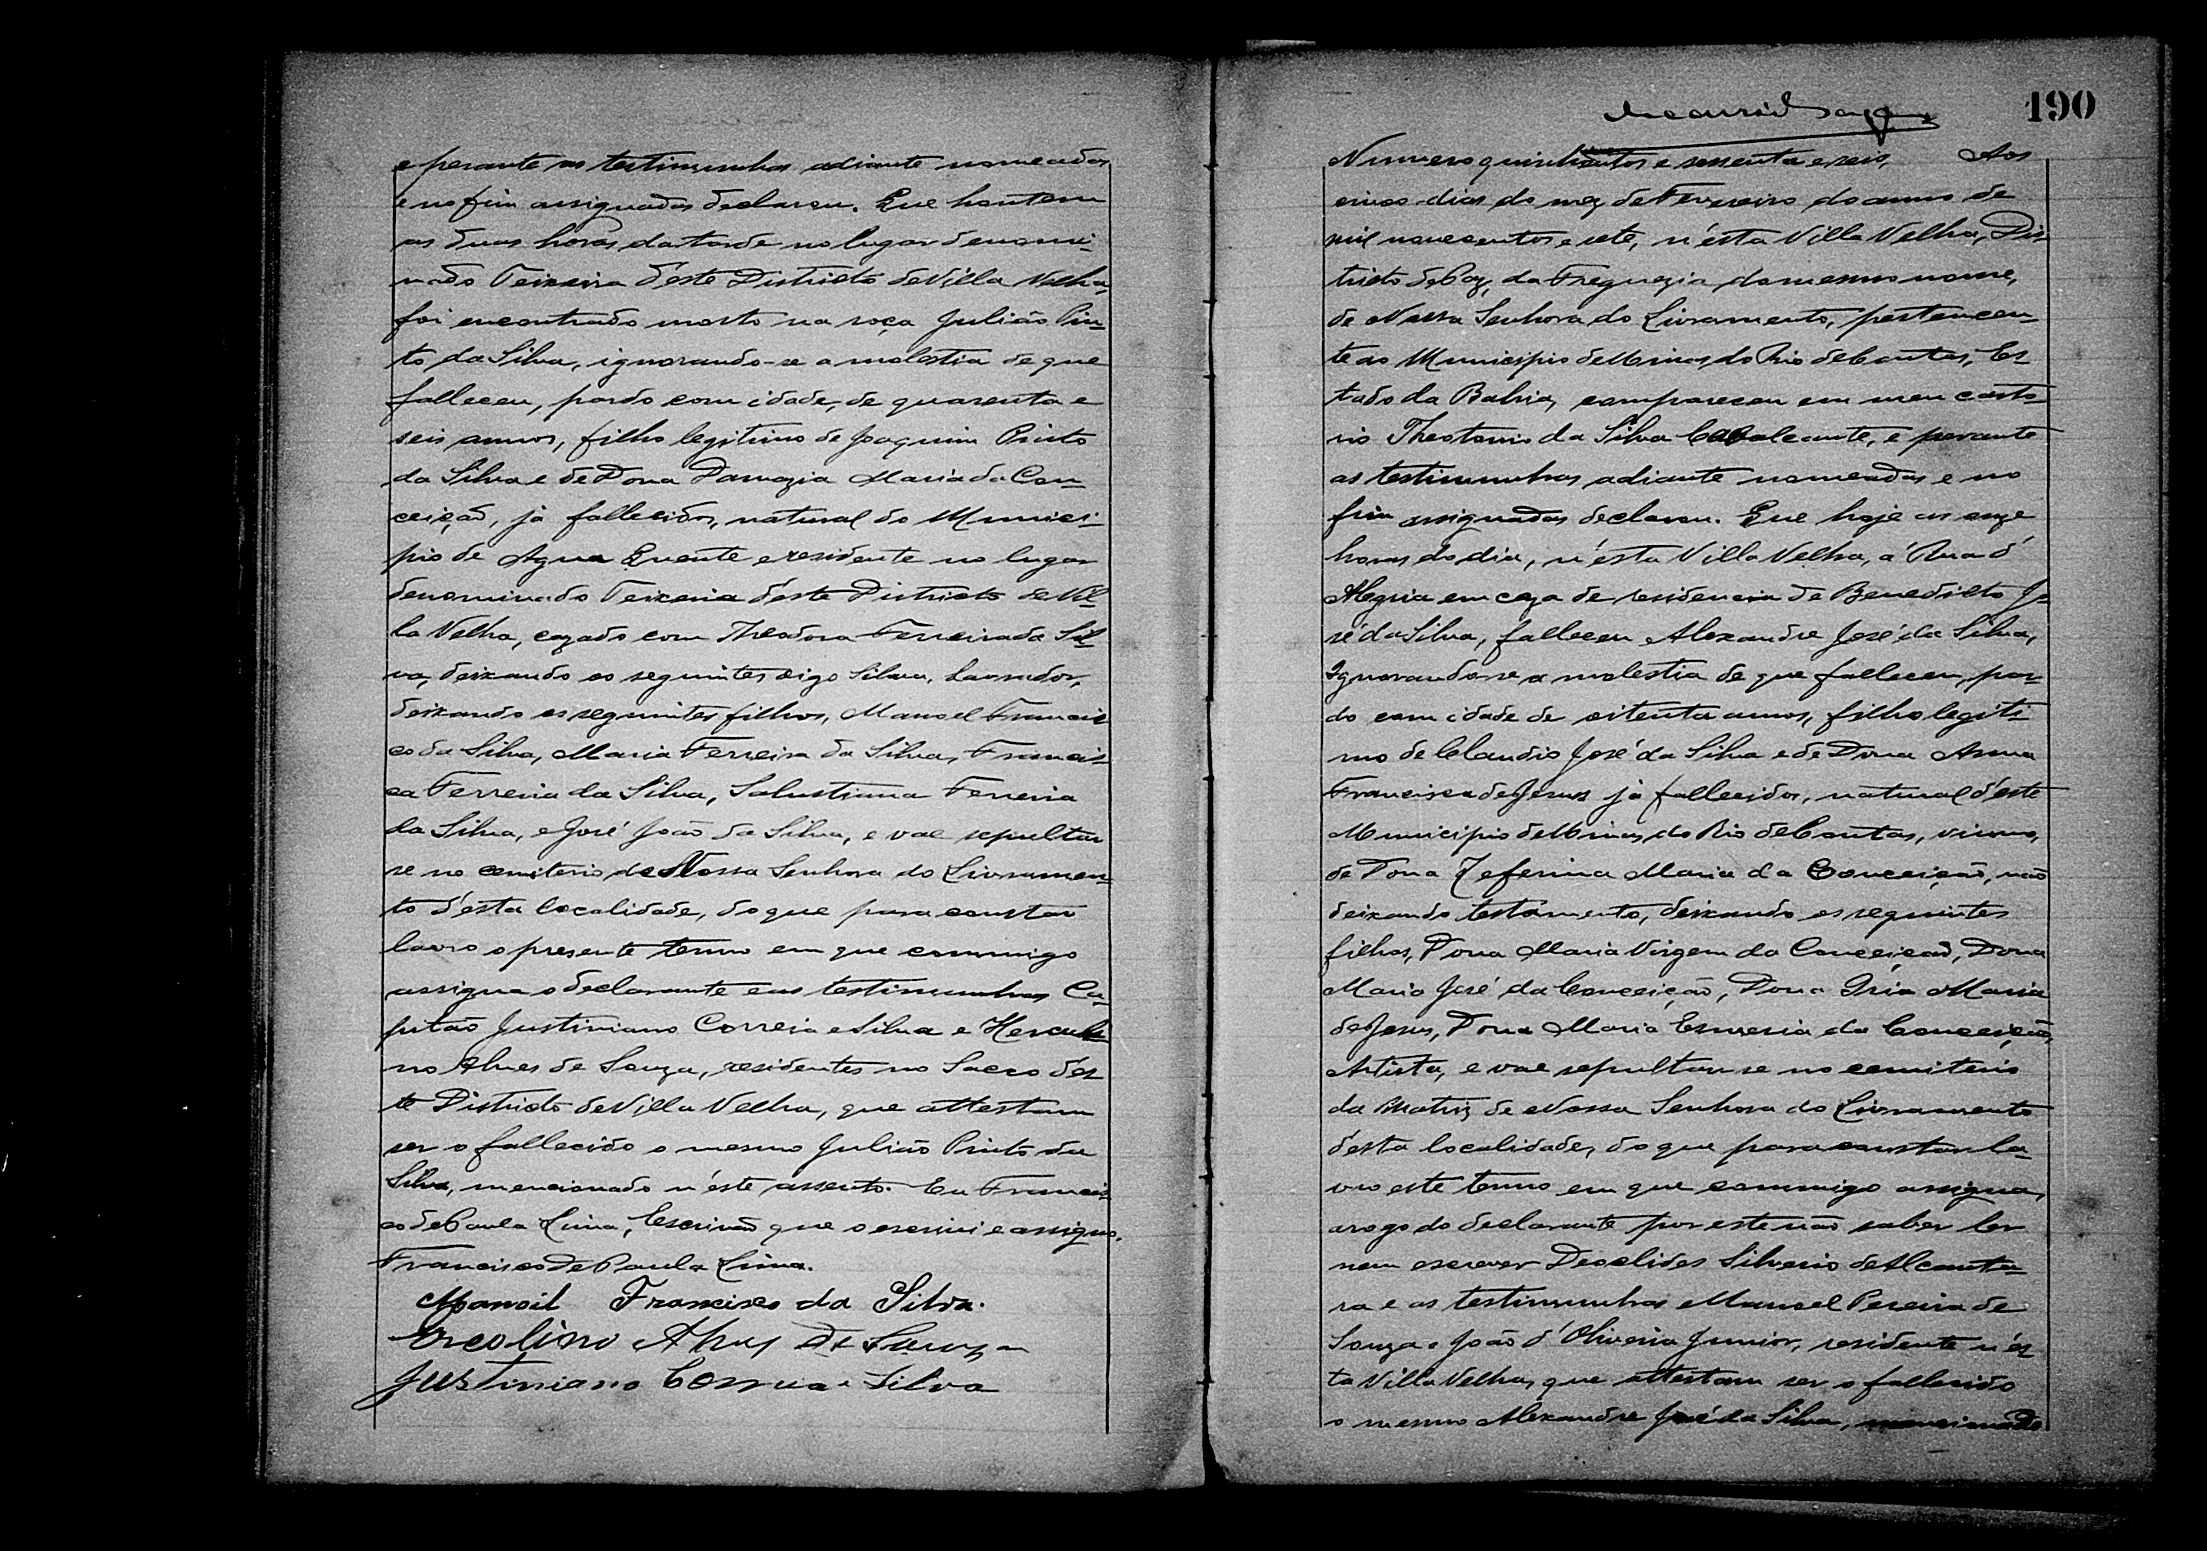 e perante as testimunhas adiante nomeadas
e no fim assignadas declarou. Que hontem
as duas horas da tarde no lugar denomi-
nado Teixeira d'este Districto de Villa Velha,
foi encontrado morto na roça Julião Pin-
to da Silva, ignorando-se a molestia de que
falleceu, pardo com idade, de quarenta e
seis annos, filho legitimo de Joaquim Pinto
da Silva e de Dona Damazia Maria da Con-
ceição, já fallecidos, natural do Munici-
pio de Agua Quente e residente no lugar
denominado Teixeira d'este Districto de Vil-
la Velha, cazado com Theodora Ferreira da Sil-
va, deixando os seguintes digo Silva, Lavrador,
deixando os seguintes filhos, Manoel Francis-
co da Silva, Maria Ferreira da Silva, Francis-
ca Ferreira da Silva, Salustiana Ferreira
da Silva, e José João da Silva, e vae sepultar
se no cemiterio de Nossa Senhora do Livramen-
to d'esta localidade, do que para constar
lavro o presente termo em que commigo
assigna o declarante e as testimunhas Ca-
pitão Justiniano Correia e Silva e Hercula
no Alves de Souza, residentes no Sacco d'es
te Districto de Villa Velha, que attestam
ser o fallecido o mesmo Julião Pinto da
Silva, mencionado n'éste assento. Eu Francis-
co de Paula Lima, Escrivão que o escrivi e assigno.
Francisco de Paula Lima.
Manoil Francisco da Silva.
Ercolino Alves de Souza
Justiniano Correia e Silva
190
Numero quinhentos e sessenta e seis, Aos
cinco dias do mez de Fevereiro do anno de
mil novecentos e sete, n'ésta Villa Velha, Dis-
tricto de Paz, da Freguezia do mesmo nome,
de Nossa Senhora do Livramento, pertencen-
te ao Municipio de Minas do Rio de Contas, Es-
tado da Bahia, compareceu em meu carto
rio Theotonio da Silva Cavalcante, e perante
as testimunhas adiante nomeadas e no
fim assignadas declarou. Que hoje as onze
horas do dia, n'ésta Villa Velha, á Rua d'
Alegria em caza de residencia de Benedicto Jo-
sé da Silva, falleceu Alexandre José da Silva,
Ignorando-se a molestia de que falleceu, par-
do com idade de oitenta annos, filho legiti
mo de Claudio José da Silva e de Dona Anna
Francisca de Jesus já fallecidos, natural d'éste
Municipio de Minas do Rio de Contas, viuvo,
de Dona Zeferina Maria da Conceição, não
deixando testamento, deixando os seguintes
filhos, Dona Maria Virgem da Conceição, Dona
Maria José da Conceição, Dona Iria Maria
de Jesus, Dona Maria da Conceição,
Artista, e vae sepultar se no cemiterio
da Matriz de Nossa Senhora do Livramento
d'ésta localidade, do que para constar la-
vro este termo em que commigo assigna,
arogo do declarante por este não saber ler
nem escrever Deoclides Silverio de Alcanta-
ra e as testimunhas Manoel Pereira de
Souza e João d'Oliveira Junior, residente n'es
ta Villa Velha, que attestam ser o fallecido
o mesmo Alexandre José da Silva, mencionado